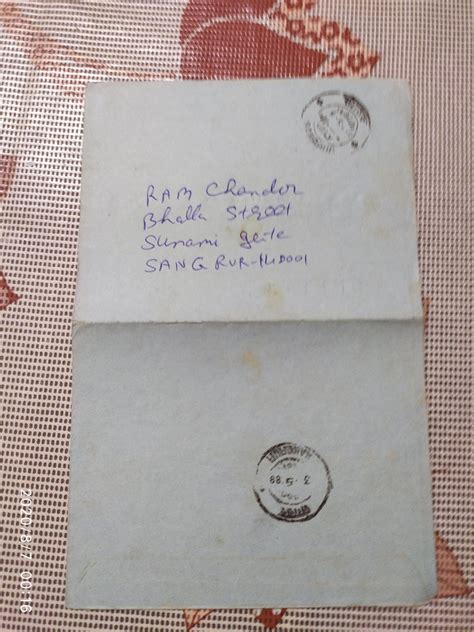 RAM Chander
Bhalla Street
Sunami gate
SANGRUR-148001
SANGRUR
3 5 88
2020/8/7 00:16